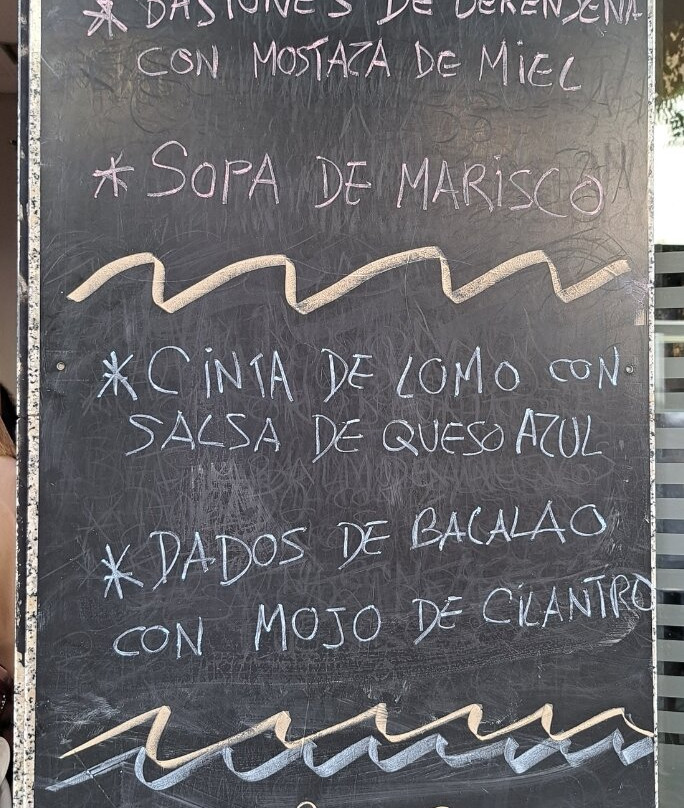 * BASTONES DE BERENJENA
CON MOSTAZA DE MIEL
* SOPA DE MARISCO
* CINTA DE LOMO CON
SALSA DE QUESO AZUL
* DADOS DE BACALAO
CON MOJO DE CILANTRO